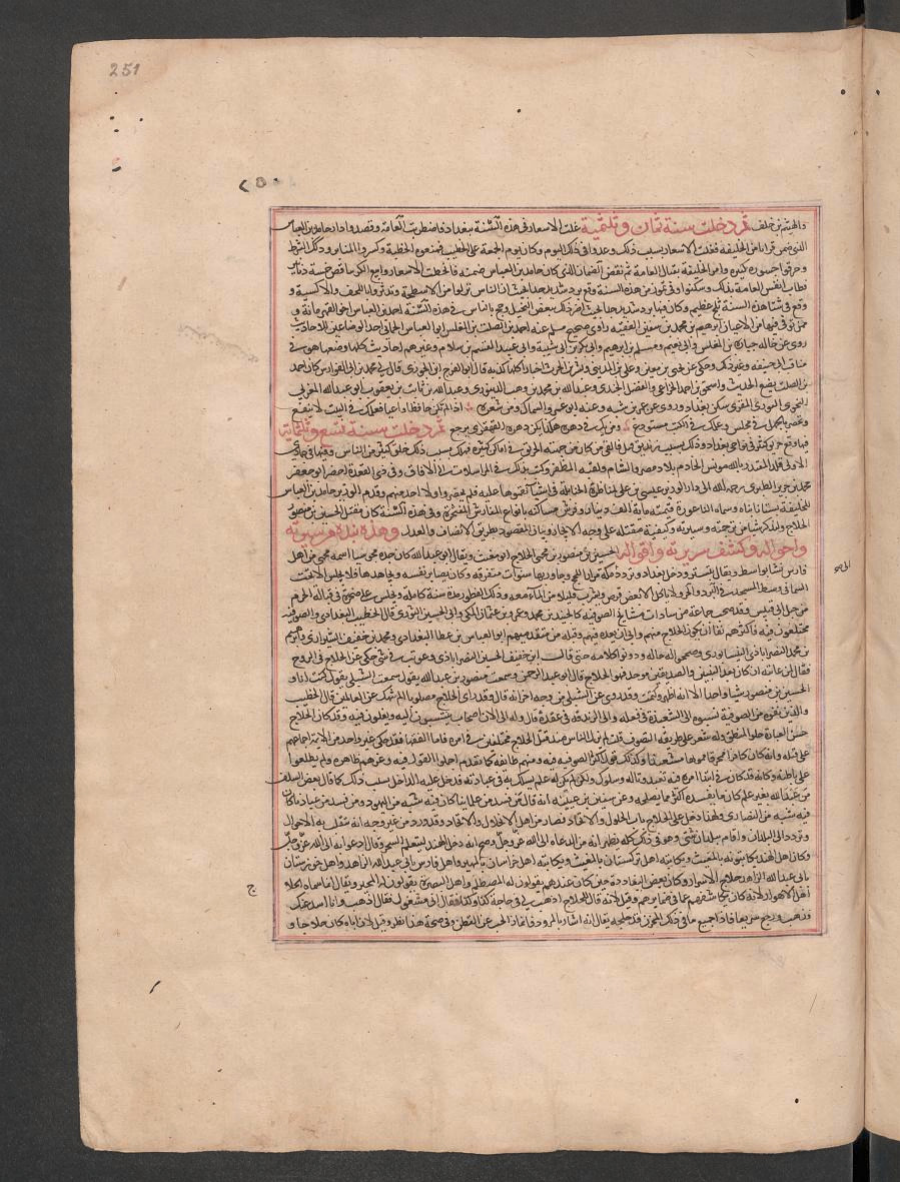 251
٢٥٠
والهيثم بن خلف ثم دخلت سنة ثمان وثلثمية غلت الاسعار فى هذه السنة ببغداد فاضطربت العامة وقصدوا دار حامد بن العباس
الذى ضمن قرايا من الخليفة فغلت الاسعار بسبب ذلك وعدوا فى ذلك اليوم وكان يوم الجمعة على الخطيب فمنعوه الخطبة وكسروا المنابر ودكك الشرط
وحرقوا جسورا كثيرة وامر الخليفة بقتال العامة ثم نقض الضمان الذى كان حامد بن العباس ضمنه فانحطت الاسعار وابيع الكر بناقص خمسة دنانير
فطابت انفس العامة بذلك وسكنوا وفى تموز من هذه السنة وقع برد شديد جدا بحيث ان الناس نزلوا من الاسطحة وتدثروا باللحف والاكسية و
وقع فى شتاء هذه السنة ثلج عظيم وكان فيها برد شديد جدا بحيث اضر ذلك ببعض النخيل وحج بالناس فى هذه السنة احمد بن العباس اخو القهرمانة و
ممن توفى فيها من الاعيان ابرهيم بن محمد بن سفين الفقيه راوى صحيح مسلم عنه احمد بن الصلت بن المغلس ابو العباس الحمانى احد الوضاعين للاحاديث
روى عن خاله جبارة بن المغلس وابى نعيم ومسلم بن ابرهيم وابى بكر بن ابى شيبة وابى عبيد القسم بن سلام وغيرهم احاديث كلها وضعها هو فى
مناقب ابى حنيفة وغير ذلك وحكى عن يحيى بن معين وعلى بن المدينى وبشر بن الحرث اخبارا كلها كذب قال ابو الفرج ابن الجوزى قال لى محمد بن ابى الفوارس كان احمد
بن الصلت يضع الحديث واسحق بن احمد الخزاعى والمفضل الجندى وعبد الله بن محمد بن وهب الدينورى وعبد الله بن ثابت بن يعقوب ابو عبد الله المقرى
النحوى التوزى المقرى سكن بغداد وروى عن عمر بن شبة وعنه ابو عمرو السماك ومن شعره اذا لم تكن حافظا واعيا فعلمك فى البيت لا ينفع
وتحضر بالجهل فى مجلس وعلمك فى الكتب مستودع ومن يك فى دهره هكذا يكن دهره القهقرى يرجع ثم دخلت سنة تسع وثلثماية
فيها وقع حريق كثير فى نواحى بغداد وذلك بسبب زنديق قتل فالقى من كان من جهته الحريق فى اماكن كثيرة فهلك بسبب ذلك خلق كثير من الناس وفيها فى جمادى
الاولى قلد المقتدر بالله مونس الخادم بلاد مصر والشام ولقبه المظفر وكتب بذلك فى المراسلات الى الآفاق وفى ذى القعدة احضر ابو جعفر
محمد بن جرير الطبرى رحمه الله الى دار الوزير عيسى بن على لمناظرة الحنابلة فى اشيا نقموها عليه فلم يحضروا ولا احد منهم وقدم الوزير حامد بن العباس
للخليفة بستانا بناه وسماه الناعورة قيمته ماية الف دينار وفرش مساكنه بانواع المفارش المفتخرة وفى هذه السنة كان مقتل الحسين بن منصور
الحلاج ولنذكر شيا من ترجمته وسيرته وكيفية مقتله على وجه الايجاز وبيان المقصود بطريق الانصاف والعدل وهذه نبذة من سيرته
واحواله وكشف سريرته واقواله الحسين بن منصور بن محمى الحلاج ابو مغيث ويقال ابو عبد الله كان جده مجوسيا اسمه محمى من اهل
فارس نشا بواسط ويقال بتستر ودخل بغداد وتردد الى مكة مرارا للحج وجاور بها سنوات متفرقة وكان يصابر نفسه ويجاهدها فلا يجلس الا تحت
السما فى وسط المسجد فى البرد والحر ولا ياكل الا بعض قرص ويشرب قليلا من الماء معه وذلك وقت الفطور مدة سنة كاملة ويجلس على صخرة فى قبالة الحرم
من جبل ابى قبيس وقد صحب جماعة من سادات مشايخ الصوفية كالجنيد بن محمد وعمرو بن عثمان المكى وابى الحسين النورى قال الخطيب البغدادى والصوفية
مختلفون فيه فاكثرهم نفا ان يكون الحلاج منهم وابى ان يعده فيهم وقبله من متقدميهم ابو العباس بن عطا البغدادى ومحمد بن خفيف الشيرازى وابرهيم
بن محمد النصراباذى النيسابورى وصححوا له حاله ودونوا كلامه حتى قال ابن خفيف الحسين بن منصور عالم ربانى
فقال ان عاتبه ان كان بعد النبيين والصديقين موحد فهو الحلاج قال ابو عبد الرحمن وسمعت منصور بن عبد الله يقول سمعت الشبلى يقول كنت انا و
الحسين بن منصور شيا واحدا الا انه اظهر وكتمت وقد روى عن الشبلى من وجه اخر انه قال وقد راى الحلاج مصلوبا الم ننهك عن العالمين قال الخطيب
والذين نفوه من الصوفية نسبوه الى الشعبذة فى فعله والى الزندقة فى عقده قال وله الى الان اصحاب ينتسبون اليه ويغلون فيه وقد كان الحلاج
حسن العبارة حلو المنطق وله شعر على طريقة التصوف قلت لم يزل الناس منذ قتل الحلاج مختلفين فى امره فاما الفقها فقد حكى غير واحد من الايمة اجماعهم
على قتله وانه كان كافرا ممخرقا مموها مشعبذا وكذلك قول اكثر الصوفية فيه ومنهم طايفة كما تقدم اجملوا القول فيه وغرهم ظاهره ولم يطلعوا
على باطنه وكانه قد كان فى ابتدا امره فيه تعبد وتاله وسلوك ولكن لم يكن له علم يسلك به فى عبادته فدخل عليه الداخل بسبب ذلك كما قال بعض السلف
من عبد الله بغير علم كان ما يفسده اكثر مما يصلحه وعن سفين بن عيينة انه قال من فسد من علماينا كان فيه شبه من اليهود ومن فسد من عبادنا كان
فيه شبه من النصارى ولهذا دخل على الحلاج باب الحلول والاتحاد فصار من اهل الانحلال والالحاد وقد ورد من غير وجه انه تنقلت به الاحوال
وتردد الى البلدان واقام ببلدان شتى وهو فى ذلك كله يظهر انه من الدعاة الى الله عز وجل وصح انه دخل الهند ليتعلم السحر وقال ادعو به الى الله عز وجل
وكان اهل الهند يكاتبونه بالمغيث ويكاتبه اهل تركستان بالمقيت ويكاتبه اهل خراسان بالمميز واهل فارس بابى عبد الله الزاهد واهل خوزستان
بابى عبد الله الزاهد حلاج الاسرار وكان بعض البغاددة حين كان عندهم يقولون له المصطلم واهل البصرة يقولون له المحير ويقال انما سماه الحلاج
اهل الاهواز لانه كان يكاشفهم عما فى ضمايرهم وقيل لانه قال لحلاج اذهب فى حاجة كذا وكذا فقال انى مشغول فقال اذهب وانا اسد عنك
فذهب ورجع سريعا فاذا جميع ما فى ذلك المخزن قد حلجه يقال انه اشار بالمرود فانماز الحب عن القطن وفى صحة هذا نظر وقيل لان اباه كان حلاجا و